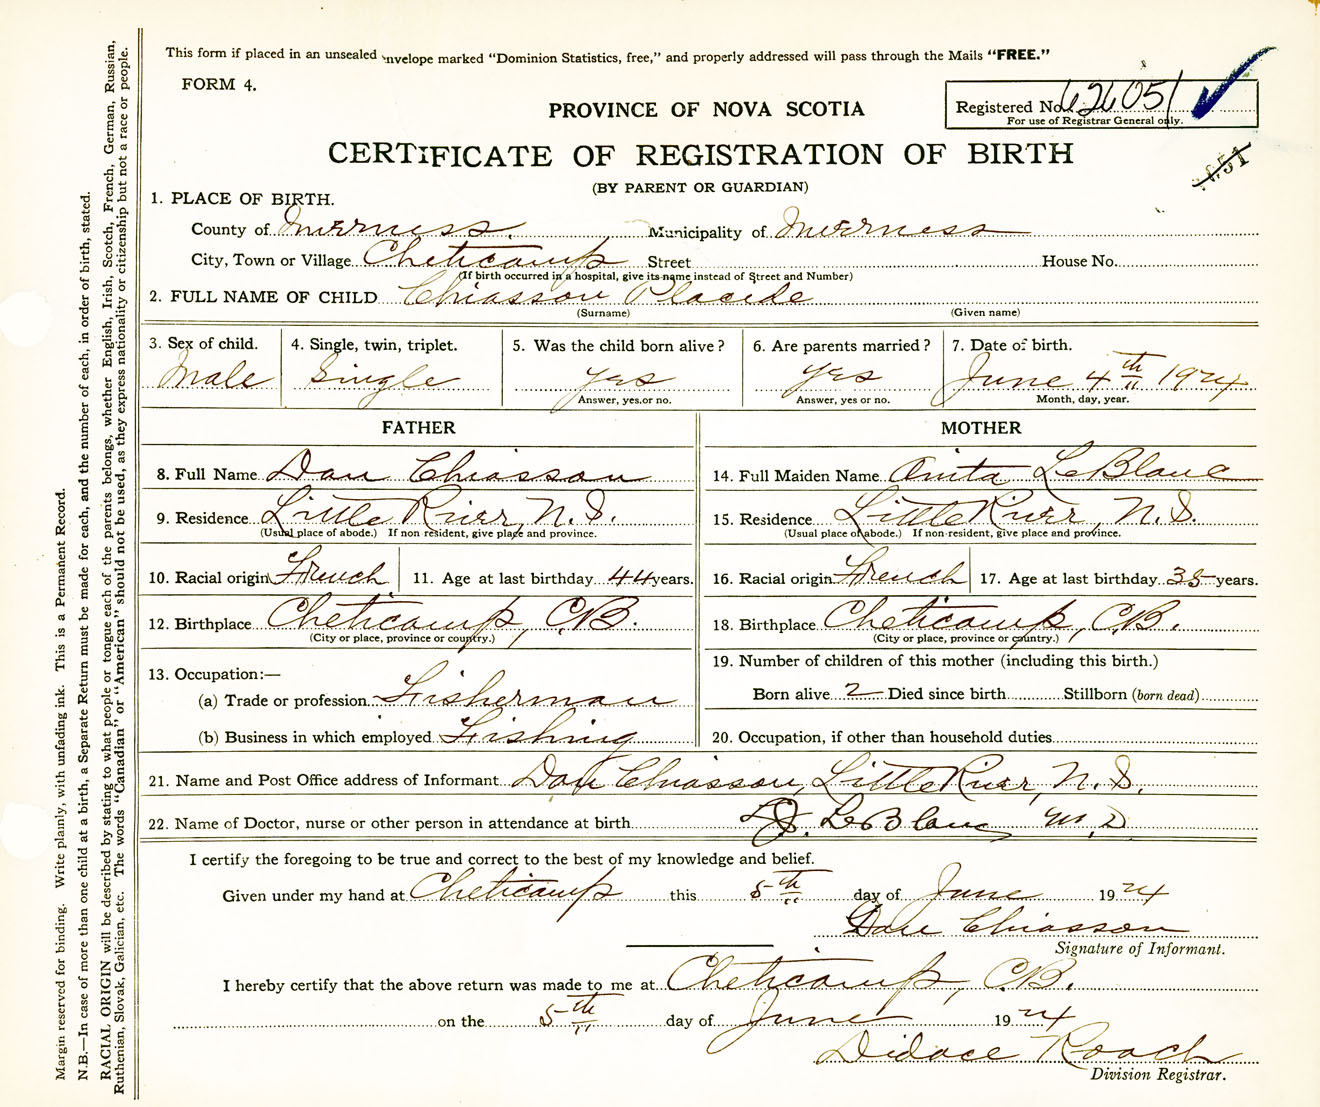 This form if placed in an unsealed envelope marked "Dominion Statistics, free," and properly addressed will pass through the Mails "FREE."
FORM 4.
Registered No. 626051
For use of Registrar General only.
PROVINCE OF NOVA SCOTIA
CERTIFICATE OF REGISTRATION OF BIRTH
(BY PARENT OR GUARDIAN)
1. PLACE OF BIRTH.
County of Inverness. Municipality of Inverness
City, Town or Village Cheticamp Street House No.
(If birth occurred in a hospital, give its name instead of Street and Number)
2. FULL NAME OF CHILD Chiasson Placide
(Surname) (Given name)
3. Sex of child. 4. Single, twin, triplet. 5. Was the child born alive? 6. Are parents married? 7. Date of birth.
Male Single yes yes June 4th 1924
Answer, yes or no. Answer, yes or no. Month, day, year.
FATHER MOTHER
8. Full Name Dan Chiasson 14. Full Maiden Name Anita LeBlanc
9. Residence Little River, N.S. 15. Residence Little River, N.S.
(Usual place of abode.) If non resident, give place and province. (Usual place of abode.) If non-resident, give place and province.
10. Racial origin French 11. Age at last birthday 44 years. 16. Racial origin French 17. Age at last birthday 35 years.
12. Birthplace Cheticamp, C.B. 18. Birthplace Cheticamp, C.B.
(City or place, province or country.) (City or place, province or country.)
13. Occupation:— 19. Number of children of this mother (including this birth.)
(a) Trade or profession Fisherman Born alive 2 Died since birth Stillborn (born dead)
(b) Business in which employed Fishing 20. Occupation, if other than household duties
21. Name and Post Office address of Informant Dan Chiasson, Little River, N.S.
22. Name of Doctor, nurse or other person in attendance at birth LeBlanc M.D.
I certify the foregoing to be true and correct to the best of my knowledge and belief.
Given under my hand at Cheticamp this 5th day of June 1924
Dan Chiasson
Signature of Informant.
I hereby certify that the above return was made to me at Cheticamp, C.B.
on the 5th day of June 1924
Didace Roach
Division Registrar.
Margin reserved for binding. Write plainly, with unfading ink. This is a Permanent Record.
N.B.—In case of more than one child at a birth, a Separate Return must be made for each, and the number of each, in order of birth, stated.
RACIAL ORIGIN will be described by stating to what people or tongue each of the parents belongs, whether English, Irish, Scotch, French, German, Russian,
Ruthenian, Slovak, Galician, etc. The words "Canadian" or "American" should not be used, as they express nationality or citizenship but not a race or people.